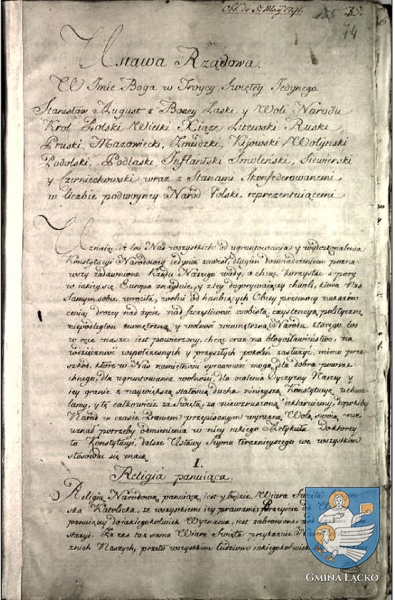 Ustawa Rządowa.
W Imie Boga w Troycy Swiętey Jedynego
Stanisław August z Bożey Łaski y Woli Narodu
Krol Polski Wielki Xiąze Litewski Ruski
Pruski, Mazowiecki, Zmudzki, Kijowski Wołynski
Podolski, Podlaski Inflantski Smolenski, Siewierski
y Czerniechowski wraz z Stanami Skonfederowanemi
w liczbie podwoyney Naród Polski reprezentuiącemi
Uznaiąc, iż los Nas wszystkich od ugruntowania y wydoskonalenia
Konstytucyi Narodowey iedynie zawisł, długim doswiadczeniem pozna
wszy zadawnione Rządu Naszego wady, a chcąc korzystać z pory
w iakiey się Europa znayduie, y z tey dogorywaiącey chwili, ktora Nas
Samym sobie wrociła, wolni od hanbiących Obcey przemocy nakazow
ceniąc drożey nad życie nad szczęśliwość osobistą, exystencyą polityczną
niepodległość zewnętrzną y wolność wewnętrzną Narodu, ktorego los
w ręce nasze iest powierzony, chcąc oraz na błogosławieństwo, na
wdzięczność wspołczesnych y przyszłych pokoleń zasłużyć, mimo prze
szkód, ktore w Nas namiętności sprawować mogą, dla dobra powsze
chnego, dla ugruntowania wolności, dla ocalenia Oyczyzny Naszey y
iey granic z naywiększą stałością ducha ninieyszą Konstytucyę uchwa
lamy, y tę całkowicie za świętą, za niewzruszoną deklaruiemy, dopokiby
Naród w czasie Prawem przepisanym wyraźną Wolą swoią nie
uznał potrzeby odmienienia w niey iakiego Artykułu. Do ktorey
to Konstytucyi, dalsze Ustawy Seymu teraznieyszego we wszystkim
stosować się maią.
I.
Religia panuiąca.
Religią Narodową panuiącą iest y będzie Wiara Święta
ska Katolicka, ze wszystkiemi iey prawami; przeyście od
panuiącey do iakiegokolwiek Wyznania, iest zabronione pod
stazyi. Że zaś taż sama Wiara Święta przykazuie
źnich Naszych, przeto wszystkim ludziom iakiegokolwiek
GMINA ŁĄCKO